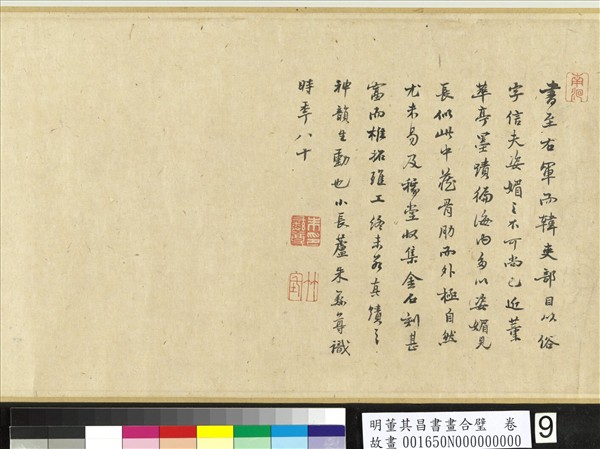 書至右軍而韓吏部目以俗
字信夫姿媚之不可尚已近董
華亭墨蹟徧海内多以姿媚見
長似此中藏骨肋而外極自然
尤未易及穟堂收集金石刻甚
富而椎拓雖工終未若真蹟之
神韻生動也小長蘆朱彝尊識
時年八十
明董其昌書畫合璧 卷
故畫 001650N000000000
9